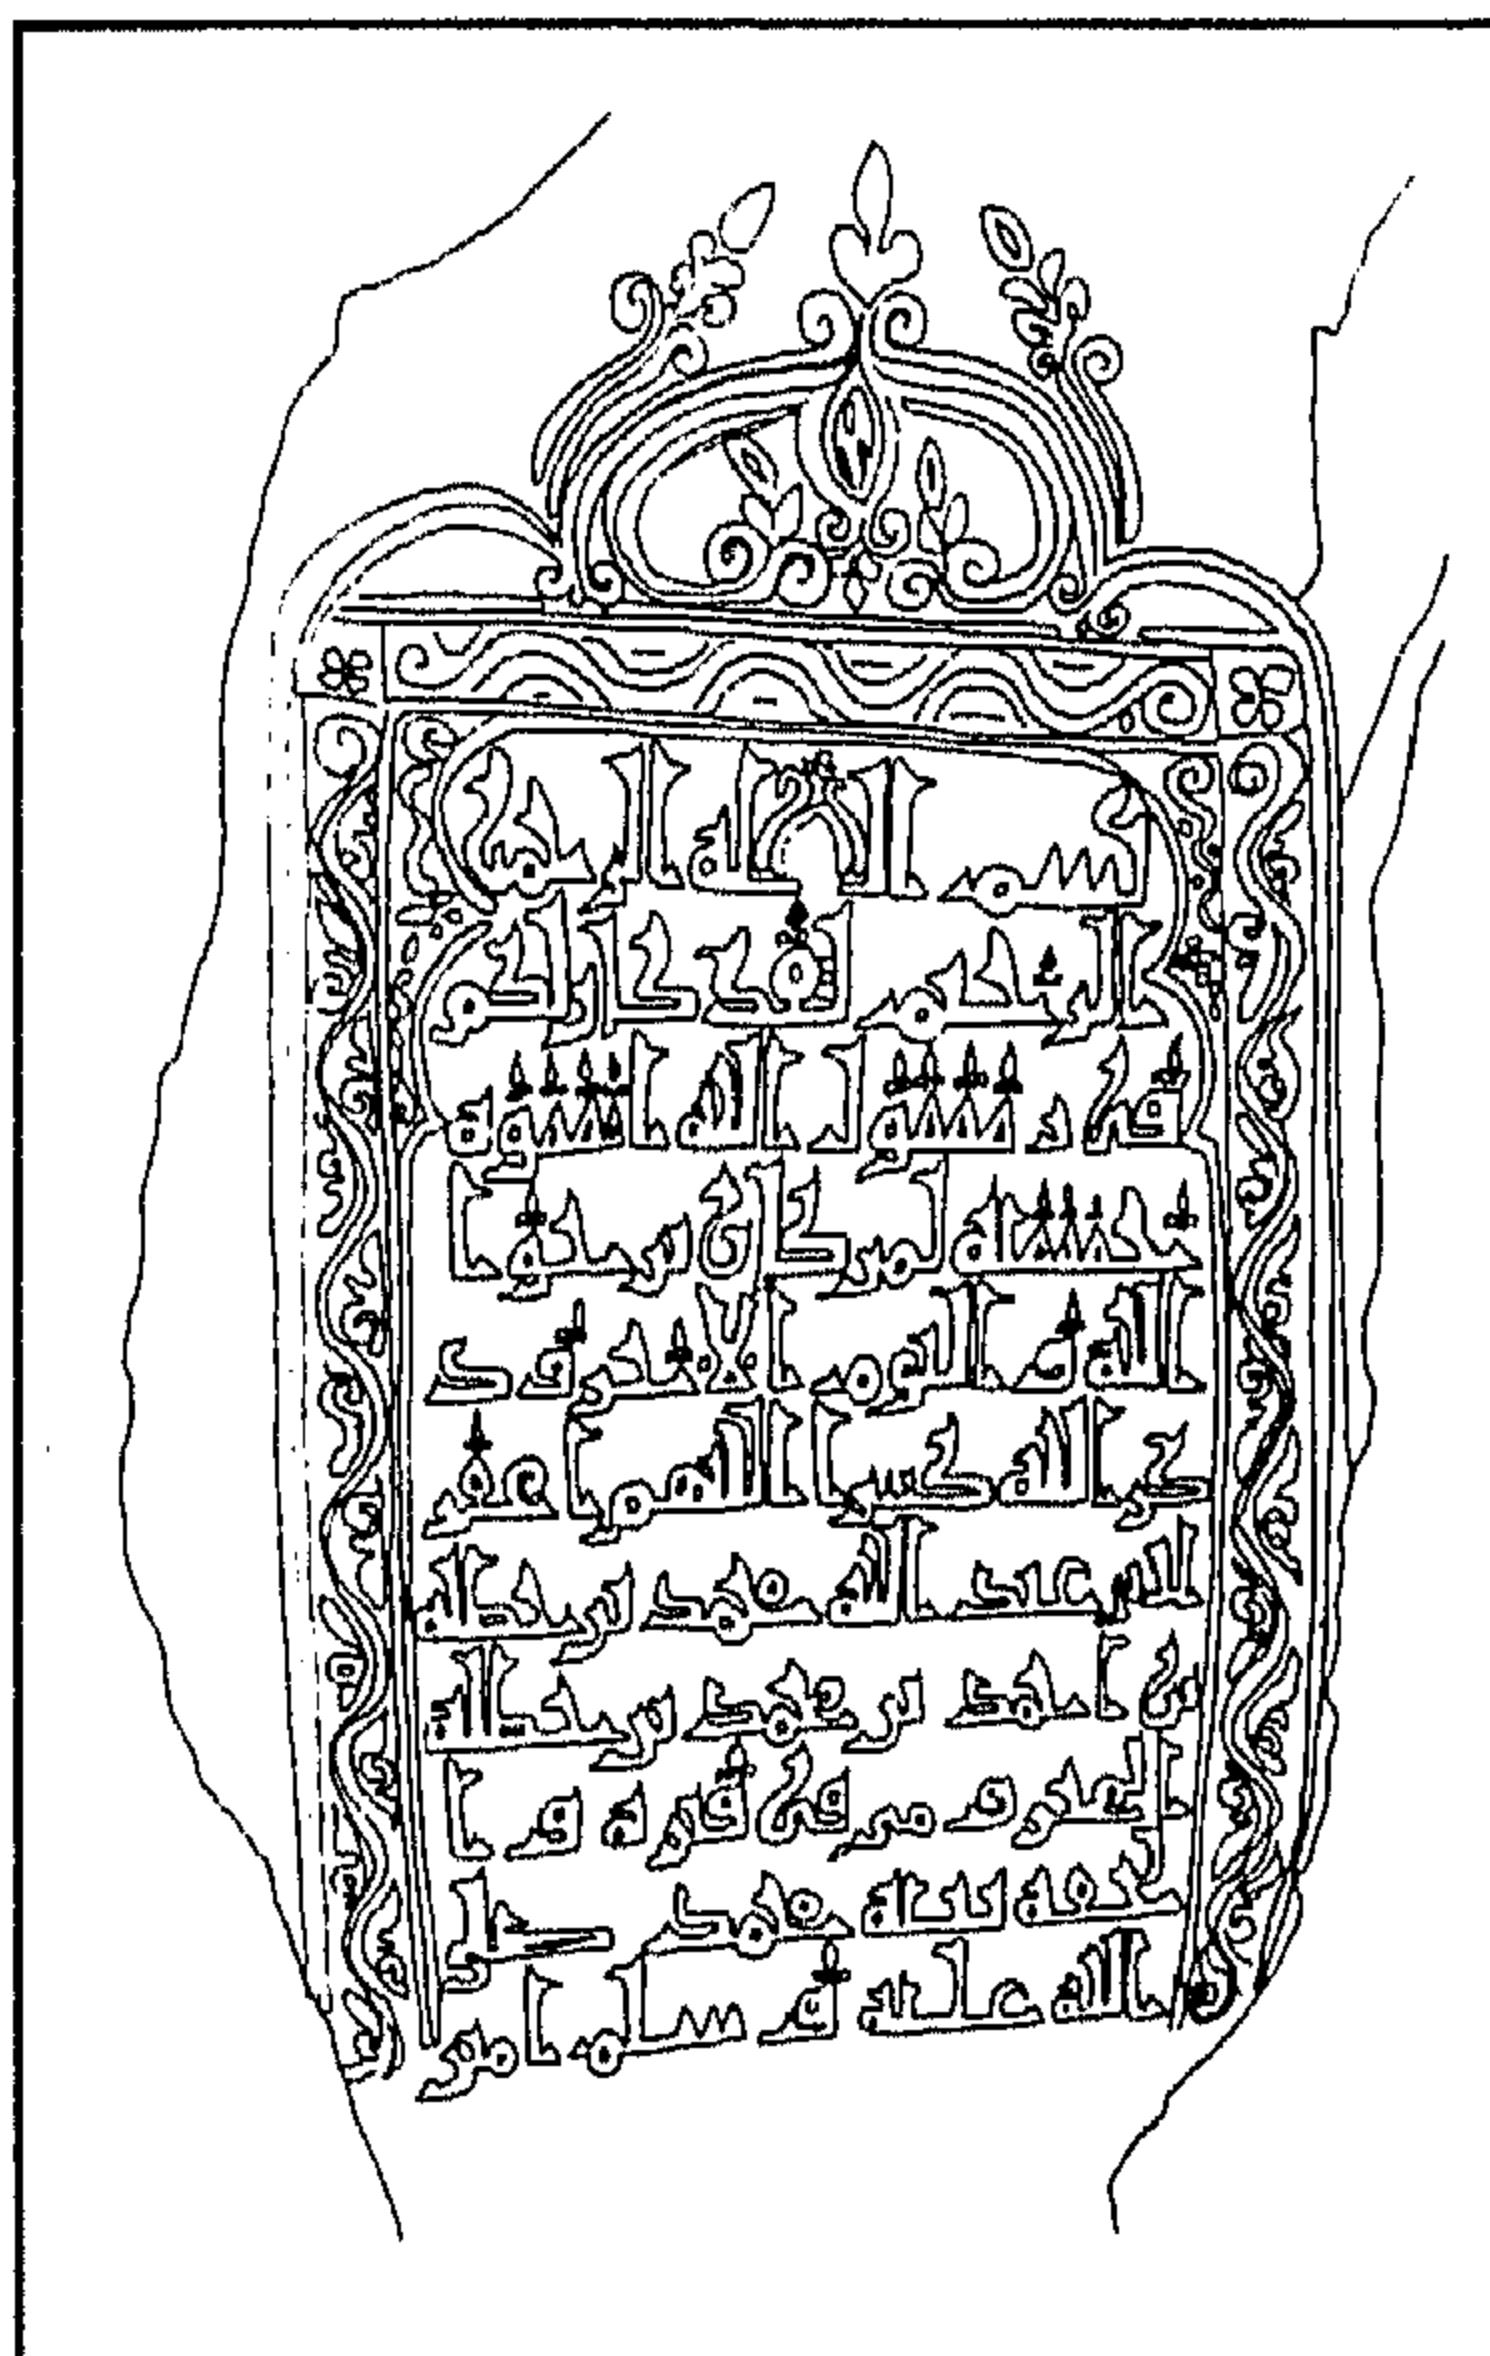 بسم الله الرحمن
الرحيم لقد كان لكم
في رسول الله اسوة
حسنة لمن كان يرجوا
الله واليوم الاخر وذكـ
ر الله كثيرا اللهم اغفر
عبد الله محمد بن عبد الله
بن احمد بن محمد بن عبد الله
ونور في قبره وا
لحقه بنبيه محمد صلى
الله عليه وسلم امين